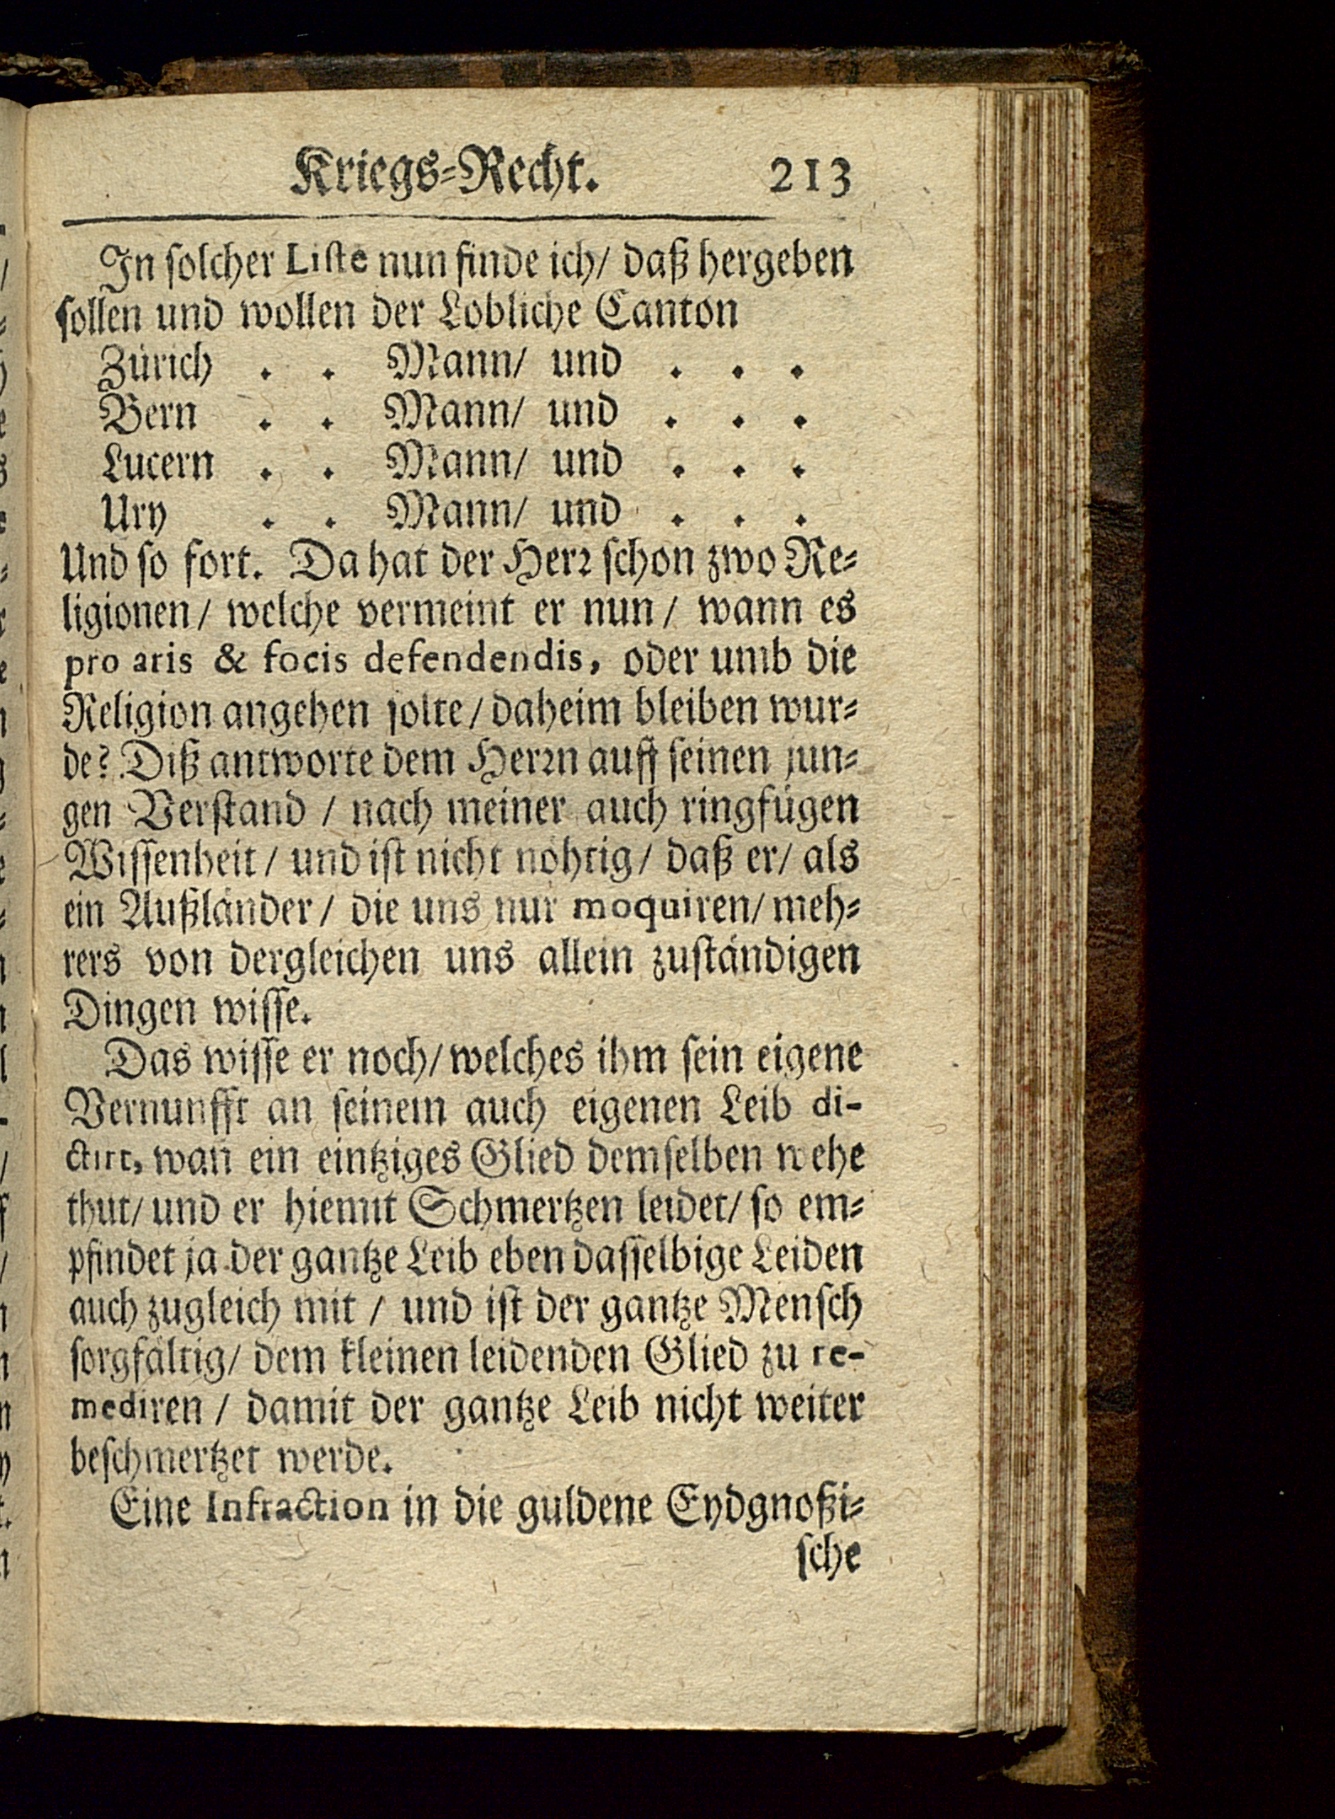 Kriegs-Recht. 213
In solcher Liste nun finde ich/ daß hergeben
sollen und wollen der Lobliche Canton
Zürich . . Mann/ und . . .
Bern . . Mann/ und . . .
Lucern . . Mann/ und . . .
Ury . . Mann/ und . . .
Und so fort. Da hat der Herr schon zwo Re-
ligionen/ welche vermeint er nun/ wann es
pro aris & focis defendendis, oder umb die
Religion angehen solte/ daheim bleiben wur-
de? Diß antworte dem Herrn auff seinen jun-
gen Verstand / nach meiner auch ringfügen
Wissenheit/ und ist nicht nöhtig/ daß er/ als
ein Außländer/ die uns nur moquiren/ meh-
rers von dergleichen uns allein zuständigen
Dingen wisse.
Das wisse er noch/ welches ihm sein eigene
Vernunfft an seinem auch eigenen Leib di-
ctirt, wañ ein eintziges Glied demselben wehe
thut/ und er hiemit Schmertzen leidet/ so em-
pfindet ja der gantze Leib eben dasselbige Leiden
auch zugleich mit / und ist der gantze Mensch
sorgfältig/ dem kleinen leidenden Glied zu re-
mediren / damit der gantze Leib nicht weiter
beschmertzet werde.
Eine Infraction in die guldene Eydgnoßi-
sche